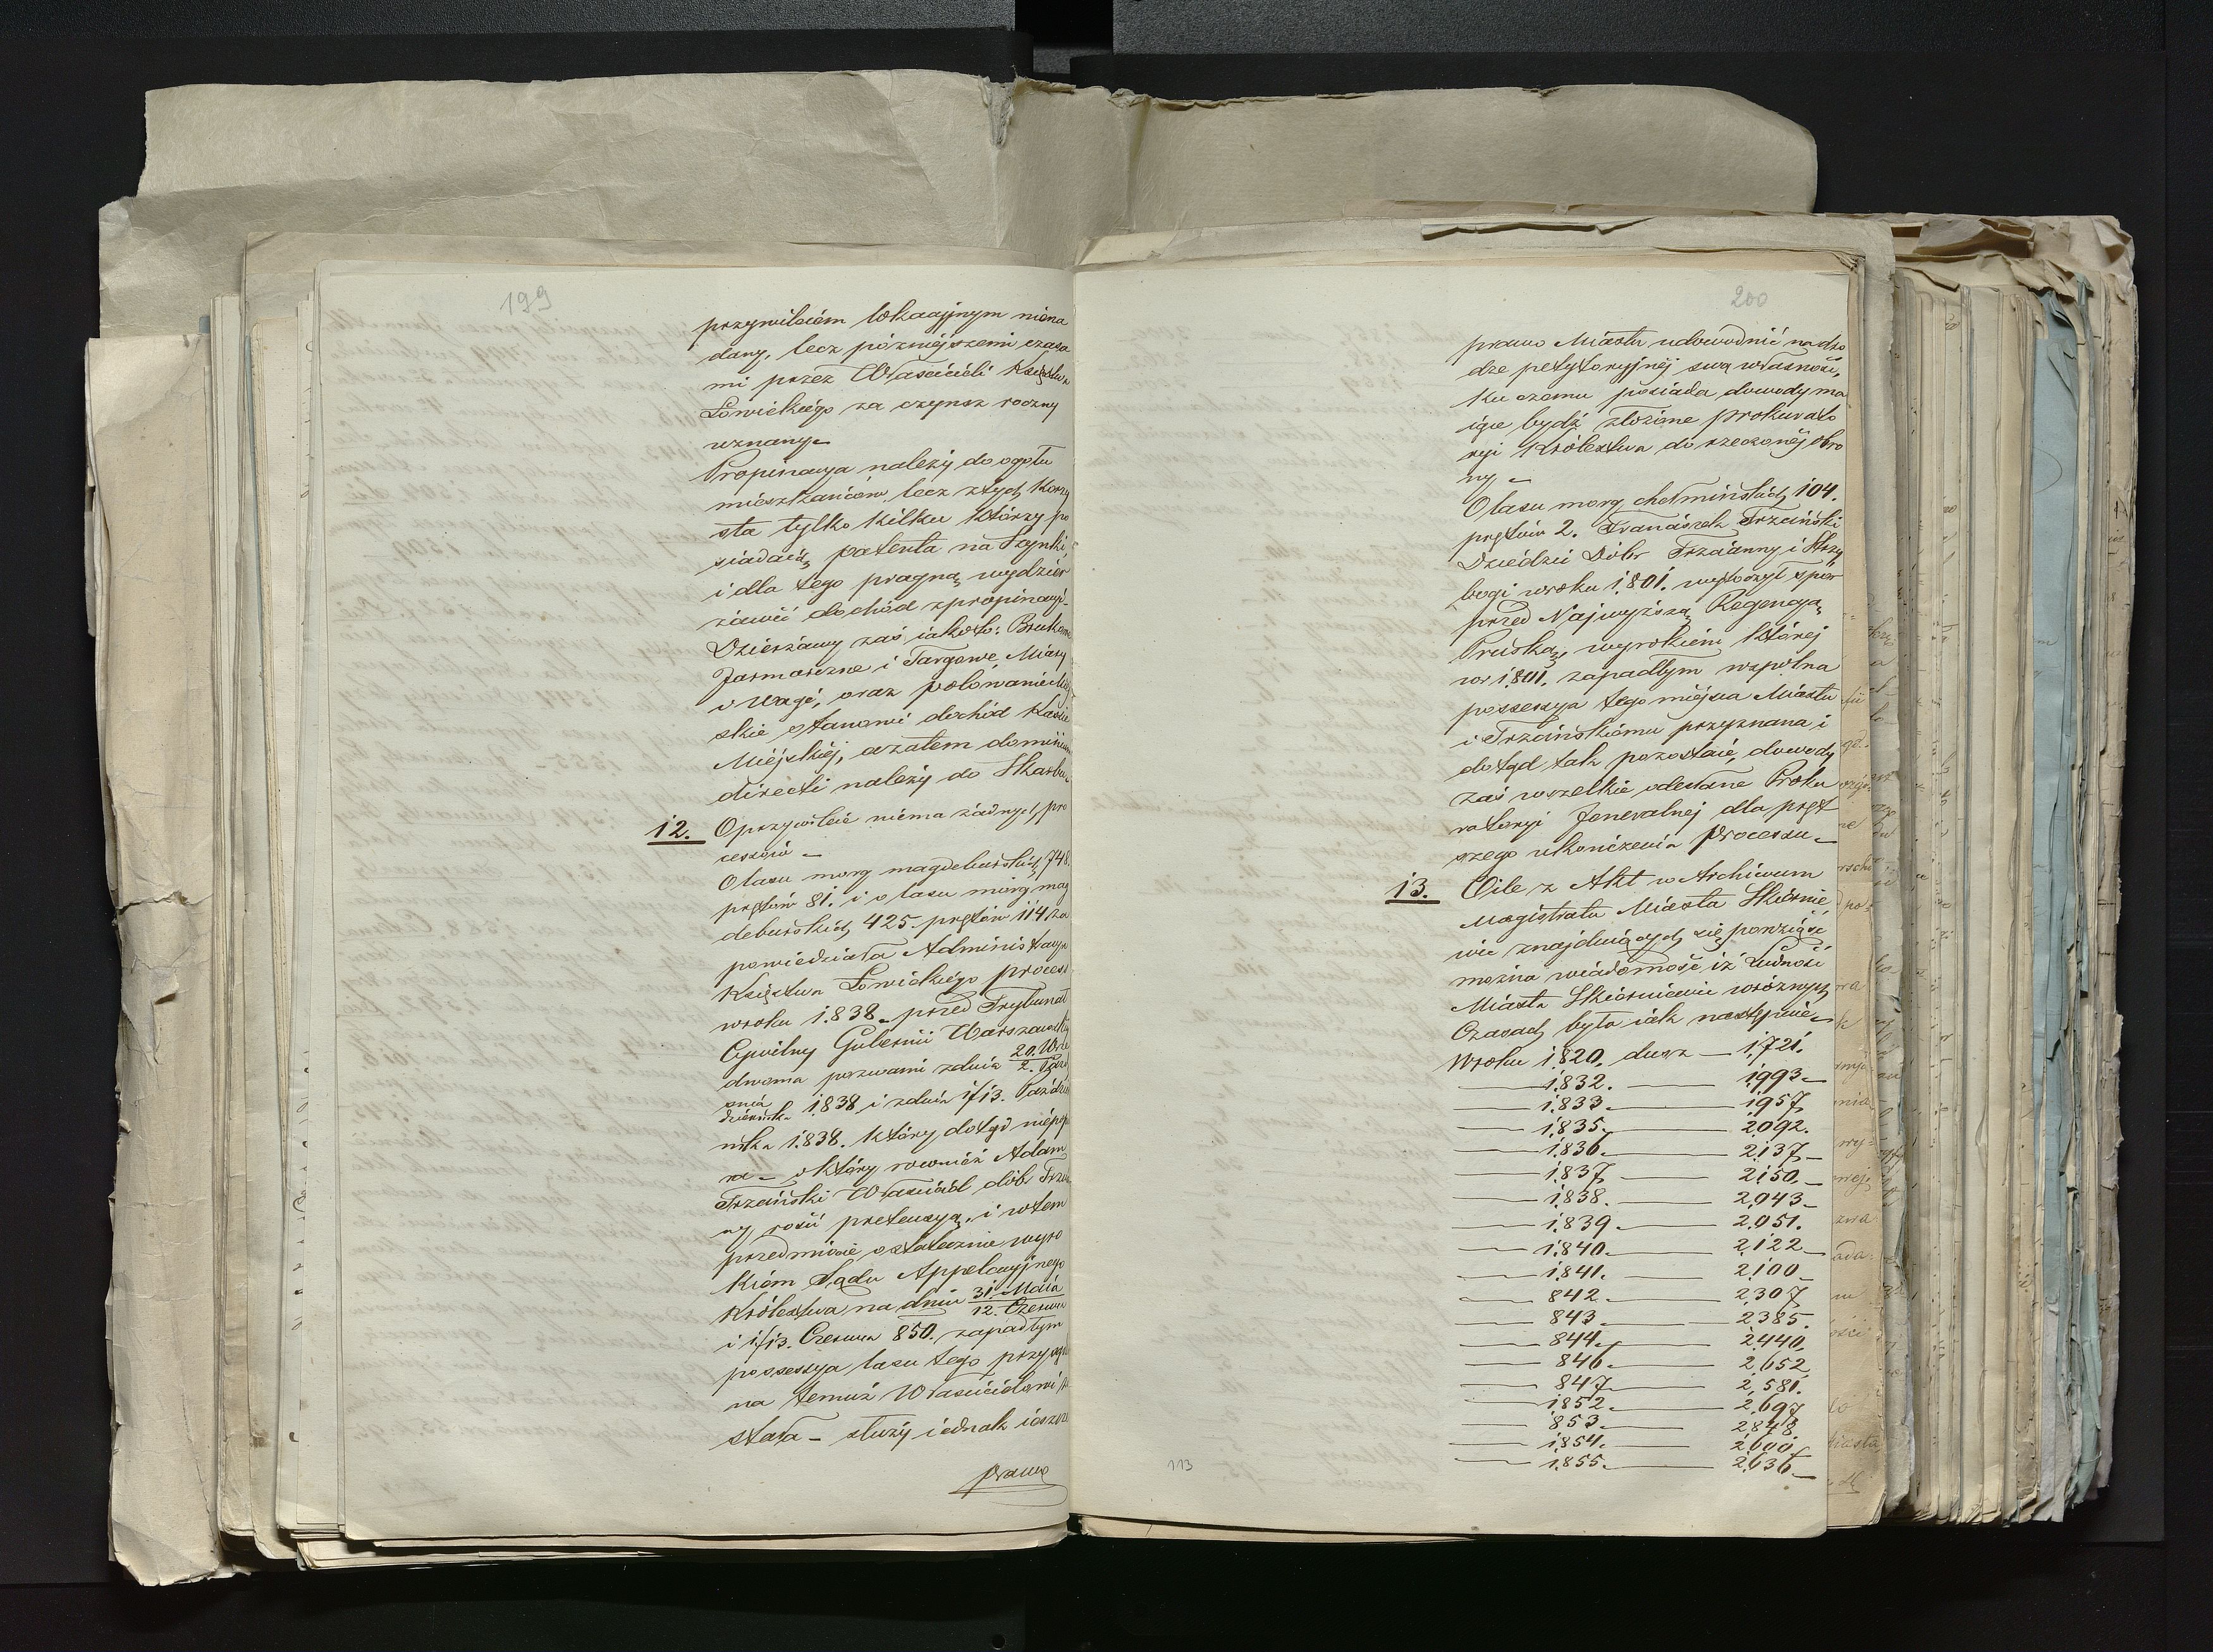 199
przywileiem lokacyjnym niena
dany, lecz poźniejszemi czasa
mi przez Właścicieli Księstwa
Łowickiego za czynsz roczny
uznany
Propinacya należy do ogółu
mieszkańców lecz z tych korzy
sta tylko kilku którzy po
siadaią patenta na Szynki,
i dla tego pragną wydzier
żawić dochód z propinacyi
Dzierżawy zaś iakoto: Brukowe
Jarmarczne i Targowe, Miary
i Wagi, oraz polowanie Miej
skie stanowi dochód Kassie
Miejskiej, a zatem dominium
directi należy do Skarbu
12. O przywileie niema żadnych pro
cessów
O lasu morg magdeburskich 748.
prętów 81. i o lasu morg mag
deburskich 425. prętów 114 za
powiedziała Administracya
Księstwa Łowickiego process
w roku 1838. przed Trybunał
Cywilny Gubernii Warszawskiéj
dwoma pozwami z dnia 20. Wrze
2. Paź
śnia
dziernika 1838 i z dnia 1/13. Paździer
nika 1838. który dotąd niepo
o który rownież Adam
Trzciński Właściciel dóbr Trzcian
ny rości pretensyą, i w tem
przedmiocie ostatecznie wyro
kiem Sądu Appelacyjnego
Królestwa na dniu 31. Maia
12. Czerwca
i 1/13. Czerwca 850. zapadłym
possessya lasu tego przyzna
na temuż Właścicielowi zo
stała - służy iednak ieszcze
prawo
200
prawo Miastu udowodnić na dro
dze petytoryjnéj swą własność,
ku czemu posiada dowody ma
iące bydź złożone Prokurato
ryi Królestwa do rzeczonéj obro
ny
O lasu morg chełmińskich 104.
prętów 2. Franciszek Trzciński
Dziedzic Dóbr Trzcianny i Strzy
bogi w roku 1801. wytoczył spór
przed Najwyższą Regencyą
Pruską, wyrokiem któréj
w r 1801. zapadłym wspólna
possessya tego miejsca Miastu
i Trzcińskiemu przyznana i
dotąd tak pozostaie, dowody
zaś wszelkie odesłane Proku
ratoryi Jeneralnéj dla pręt
szego ukończenia Processu
13. O ile z Akt w Archiwum
Magistratu Miasta Skiernie
wic znajduiących się powziąść
można wiadomość iż Ludność
Miasta Skierniewic w różnych
Czasach była iak następuie
W roku 1820. dusz — 1721.
— 1832. — 1993
— 1833. — 1957
— 1835. — 2092.
— 1836. — 2137
— 1837 — 2150
— 1838. — 2043
— 1839. — 2051.
— 1840. — 2122
— 1841. — 2100
— 842 — 2307
— 843 — 2385.
— 844 — 2440
— 846 — 2652
— 847 — 2581.
— 1852 — 2697
— 853 — 2848.
— 1854. — 2600
— 1855. — 2636
113